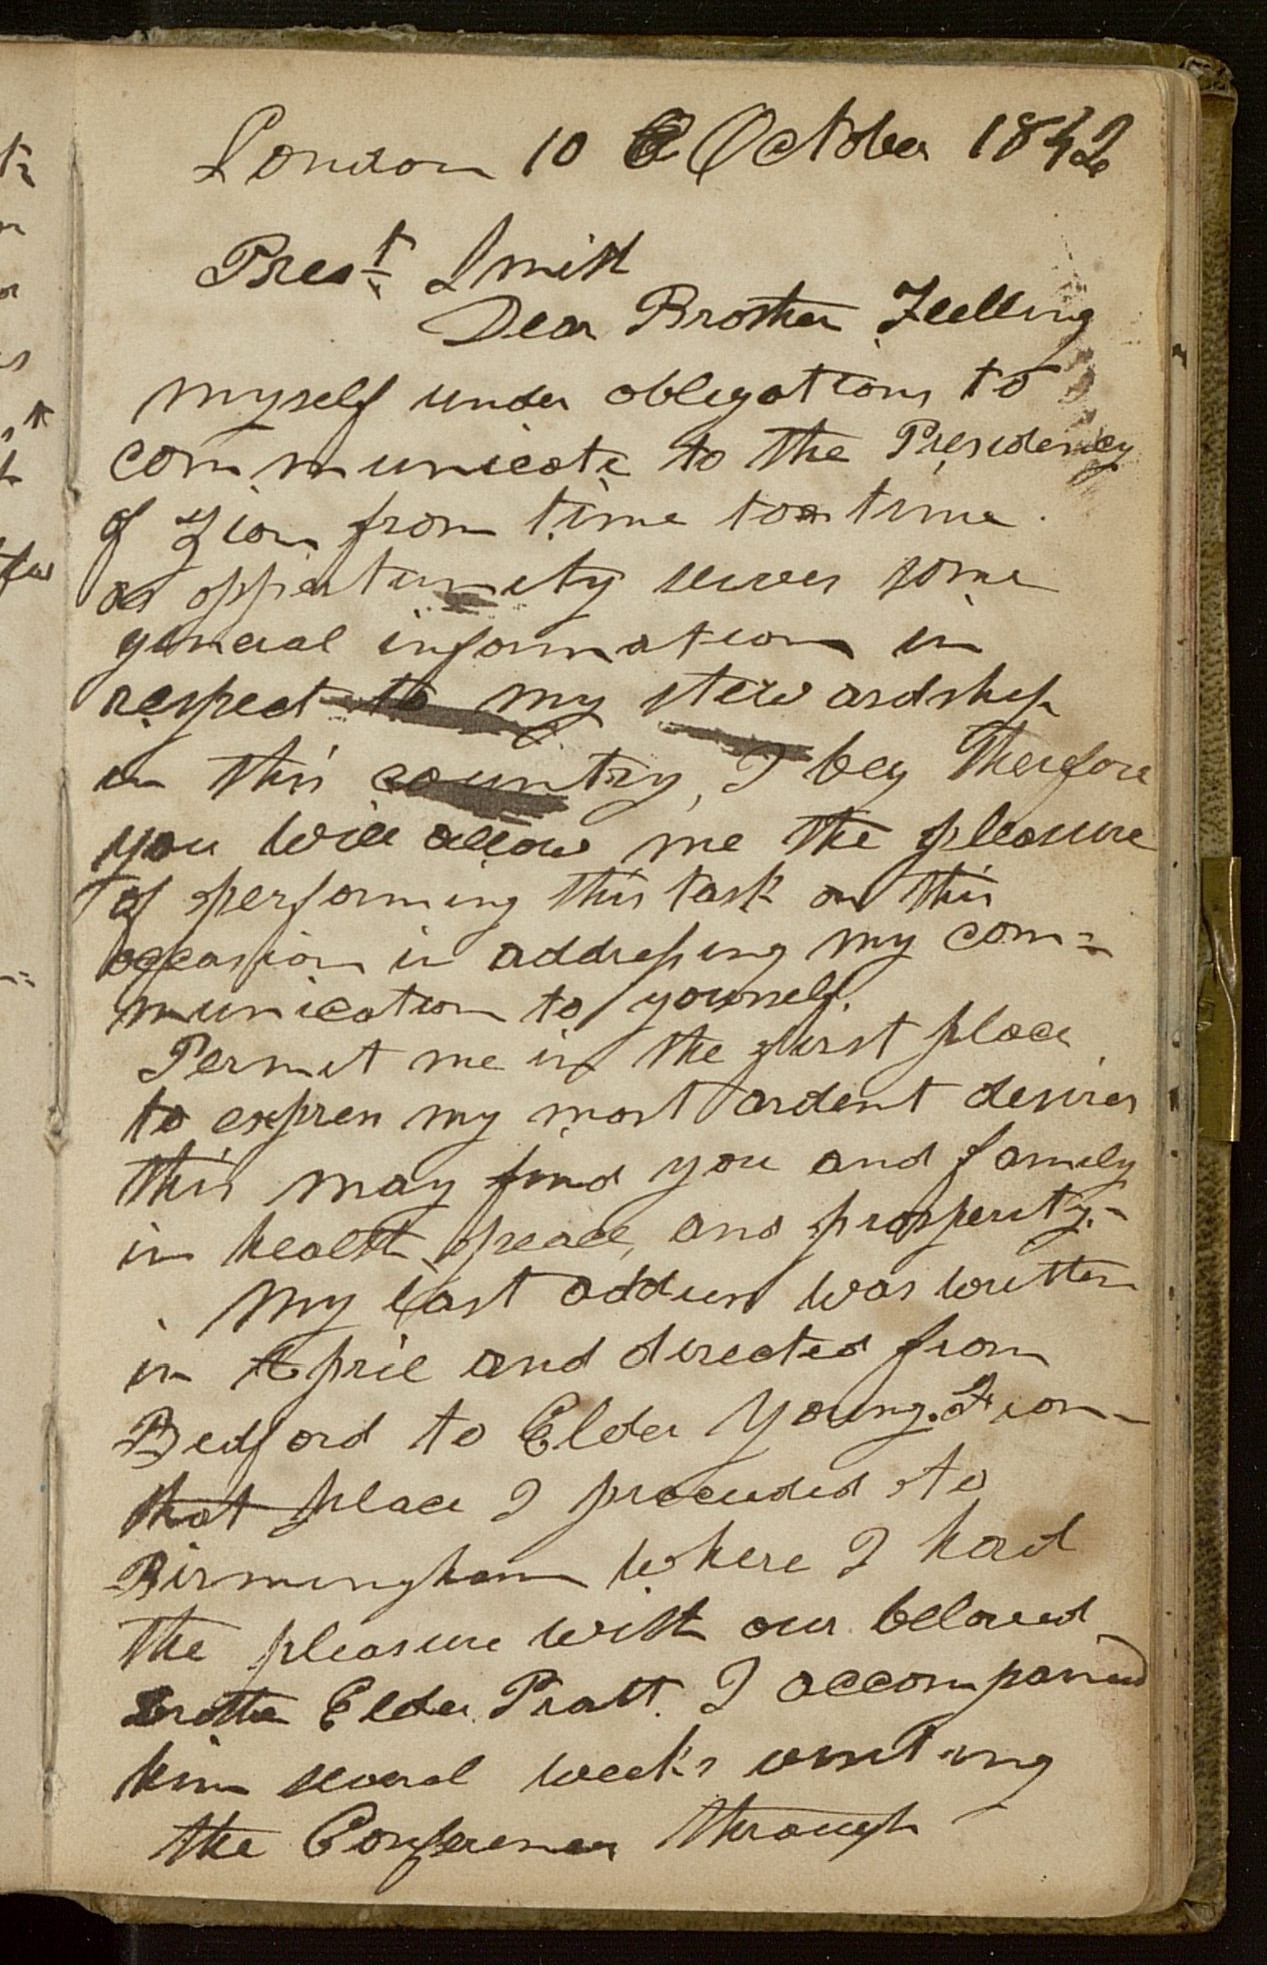 London 10 October 1842
Prest. Smith
Dear Brother Feelling
myself under obligations to
communicate to the Presidency
of Zion from time to time
as oppertunity serves some
general information in
respect to my stewardship
in this country, I beg therefore
you will allow me the pleasure
of performing this task on this
occasion in addressing my com=
munication to yourself.
Permit me in the first place
to express my most ardent desires
this may find you and family
in health, peace, and prosperity.-
My last address was written
in April and directed from
Bedford to Elder Young. From
that place I proceeded to
Birmingham where I had
the pleasure with our beloved
Elder Pratt. I accompanied
him several weeks visiting
the Conferences through